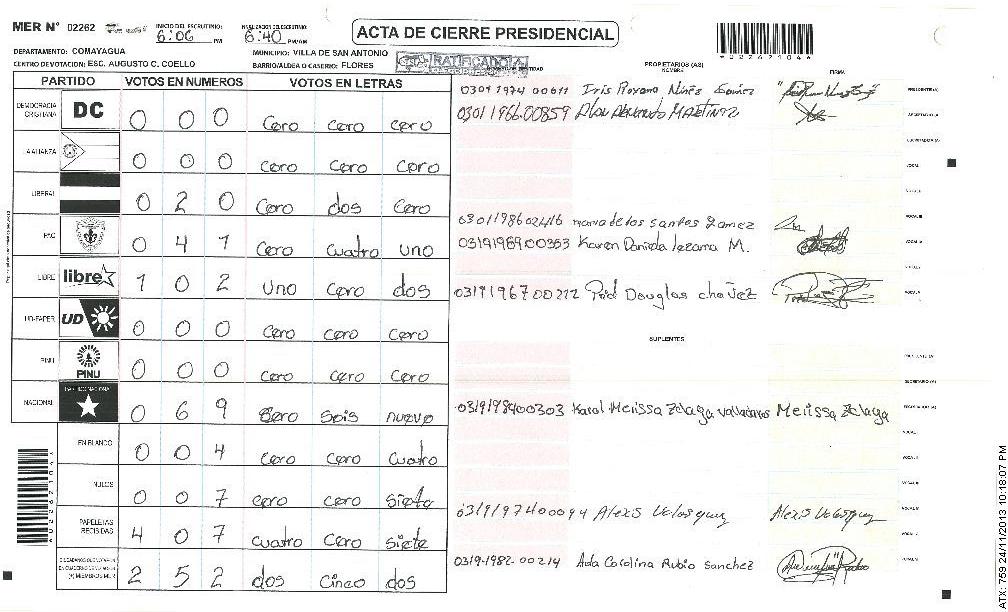 MER N° 02262
INICIO DEL ESCRUTINIO:
6:06 PM
FINALIZACION DEL ESCRUTINIO:
6:40 PM/AM
ACTA DE CIERRE PRESIDENCIAL
DEPARTAMENTO: COMAYAGUA
MUNICIPIO: VILLA DE SAN ANTONIO
CENTRO DE VOTACION: ESC. AUGUSTO C. COELLO
BARRIO/ALDEA O CASERIO: FLORES
RATIFICADO
PARTIDO VOTOS EN NUMEROS VOTOS EN LETRAS
PROPIETARIOS (AS)
NOMBRE
FIRMA
DEMOCRACIA CRISTIANA DC 0 0 0 Cero cero cero
LA ALIANZA 0 0 0 Cero Cero Cero
LIBERAL 0 2 0 Cero dos Cero
PAC 0 4 1 Cero Cuatro uno
LIBRE libre 1 0 2 uno Cero dos
UD-FAPER UD 0 0 0 Cero Cero Cero
PINU PINU 0 0 0 Cero Cero Cero
NACIONAL PARTIDO NACIONAL 0 6 9 Cero Seis nueve
EN BLANCO 0 0 4 Cero Cero Cuatro
NULOS 0 0 7 Cero Cero Siete
PAPELETAS RECIBIDAS 4 0 7 Cuatro Cero Siete
(+) MIEMBROS MER 2 5 2 dos Cinco dos
0301 1974 00611 Iris
PRESIDENTE (A)
0301 1966-00859 MARTINEZ
SECRETARIO (A)
ESCRUTADOR (A)
VOCAL
0301198602416 maria de los santos Gomez
0319198900353 Karen Daniela lezama M.
0319196700212 Douglas chavez
SUPLENTES
PRESIDENTE (A)
SECRETARIO (A)
0319198400303 Karol Merissa Zelaya valladares Merissa Zelaya
ESCRUTADOR (A)
0319197400094 Alexis Velasquez Alexis Velasquez
0319-1982-00214 Ada Carolina Rubio Sanchez
*02262104*
ATX: 759 24/11/2013 10:18:07 PM